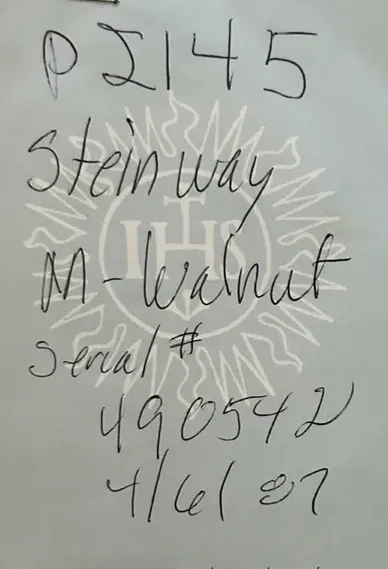 P2145
Steinway
IHS
M-Walnut
Serial #
490542
4/6/87